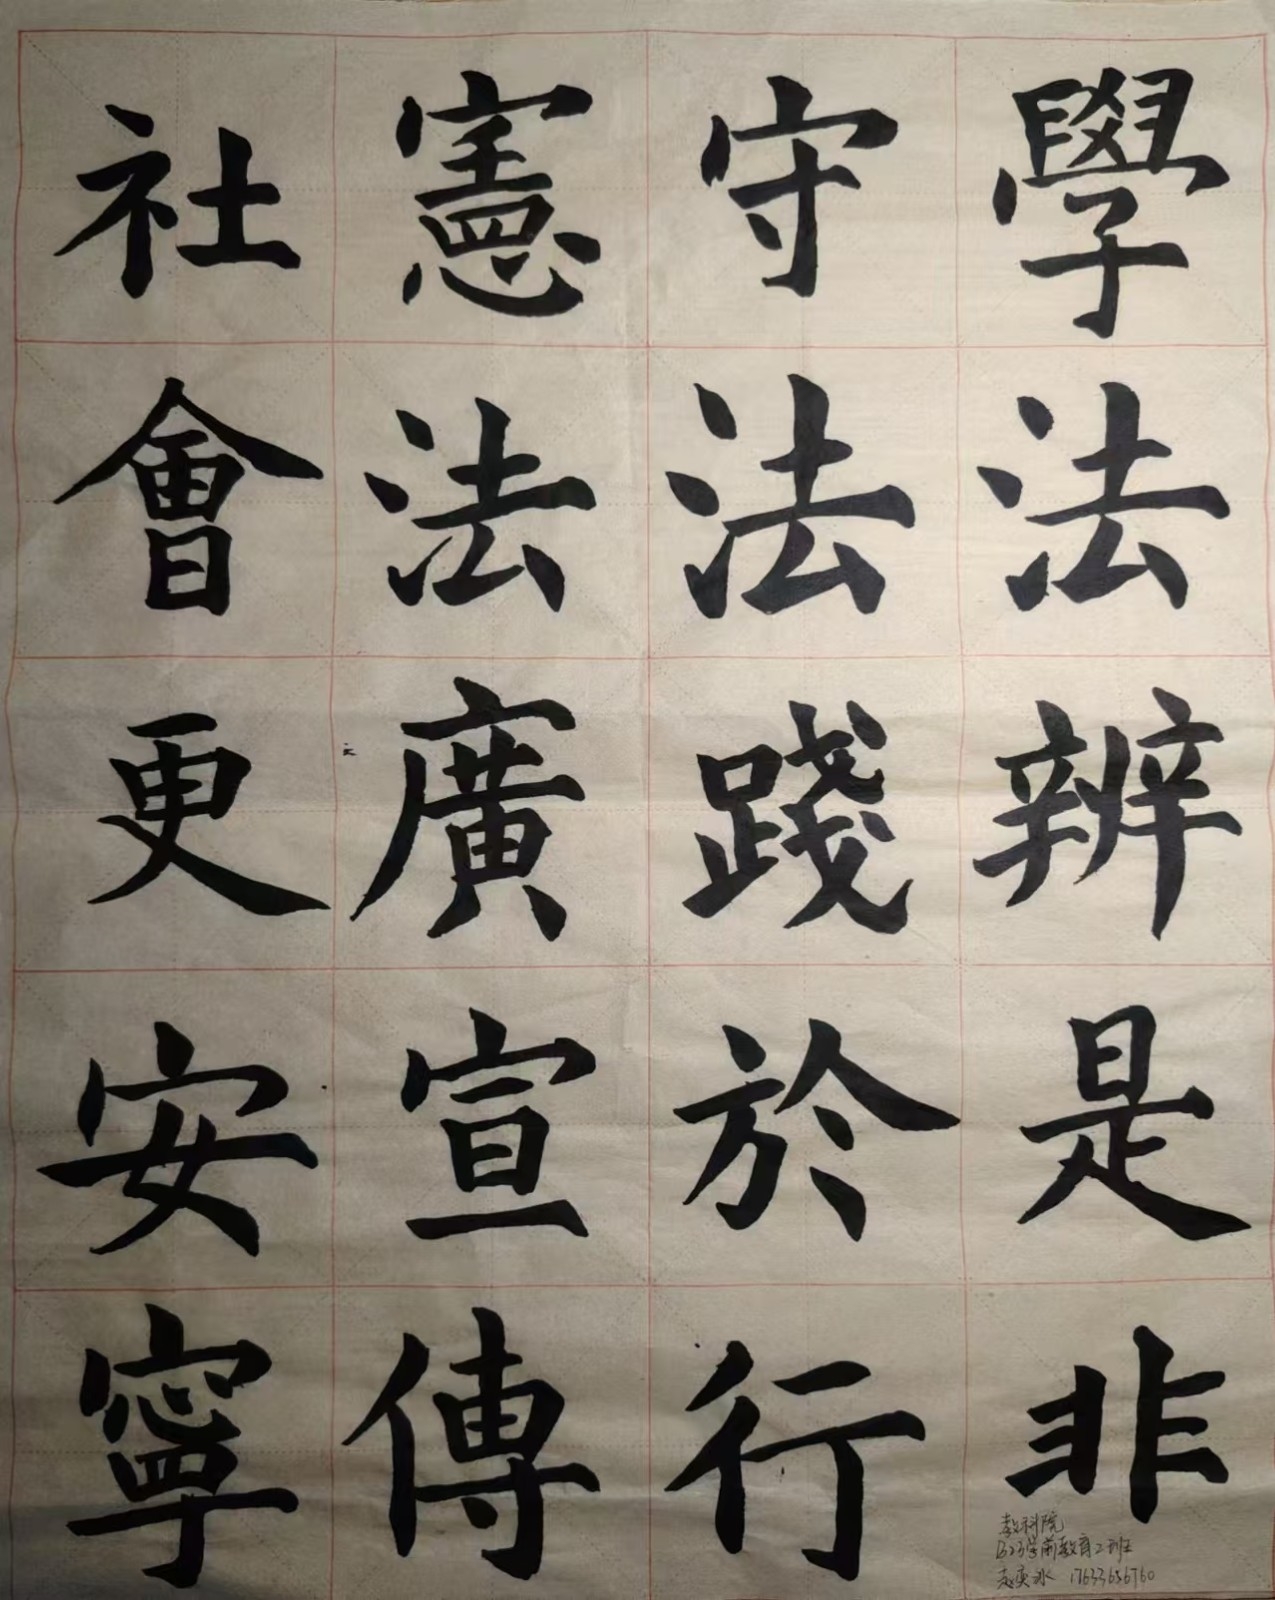 學法辨是非
守法踐於行
憲法廣宣傳
社會更安寧
教科院
B23学前教育二班
17633656760